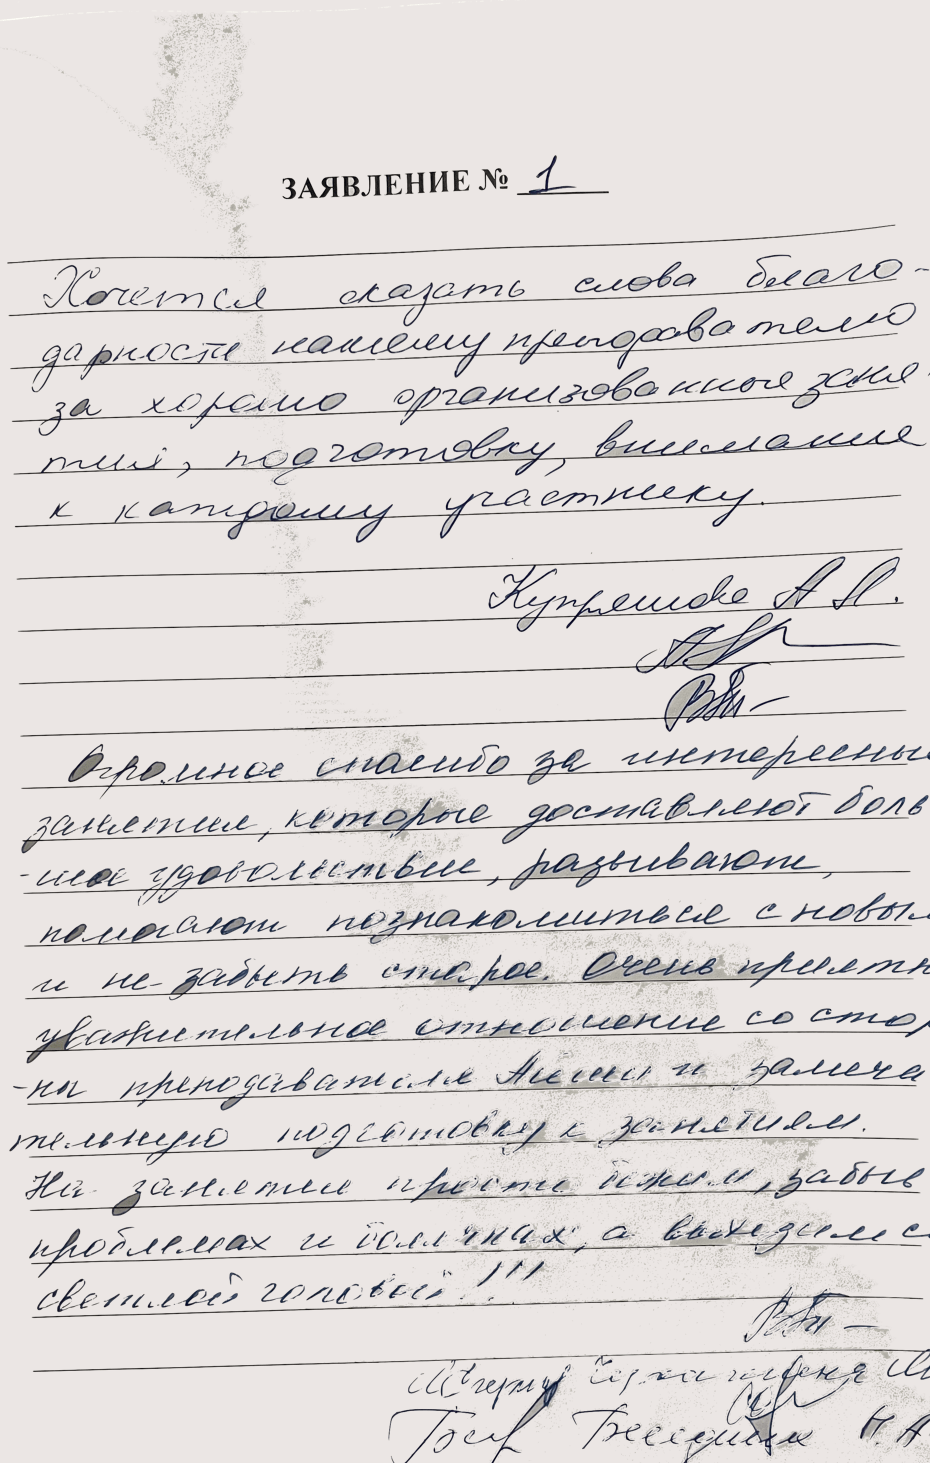 ЗАЯВЛЕНИЕ № 1
Хочется сказать слова благо-
дарности нашему преподавателю
за хорошо организованные заня-
тия, подготовку, внимание
к каждому участнику.
Купряшова А Л.
Огромное спасибо за интересные
занятия, которые доставляют боль
-шое удовольствие,
помогают познакомиться с новым
и не забыть старое. Очень приятн
уважительное отношение со стор
-ны преподавателя и замеча
тельную подготовку к занятиям.
На занятии просто живём, забыв
проблемах и болячках, а выходим с
светлой головой!!!